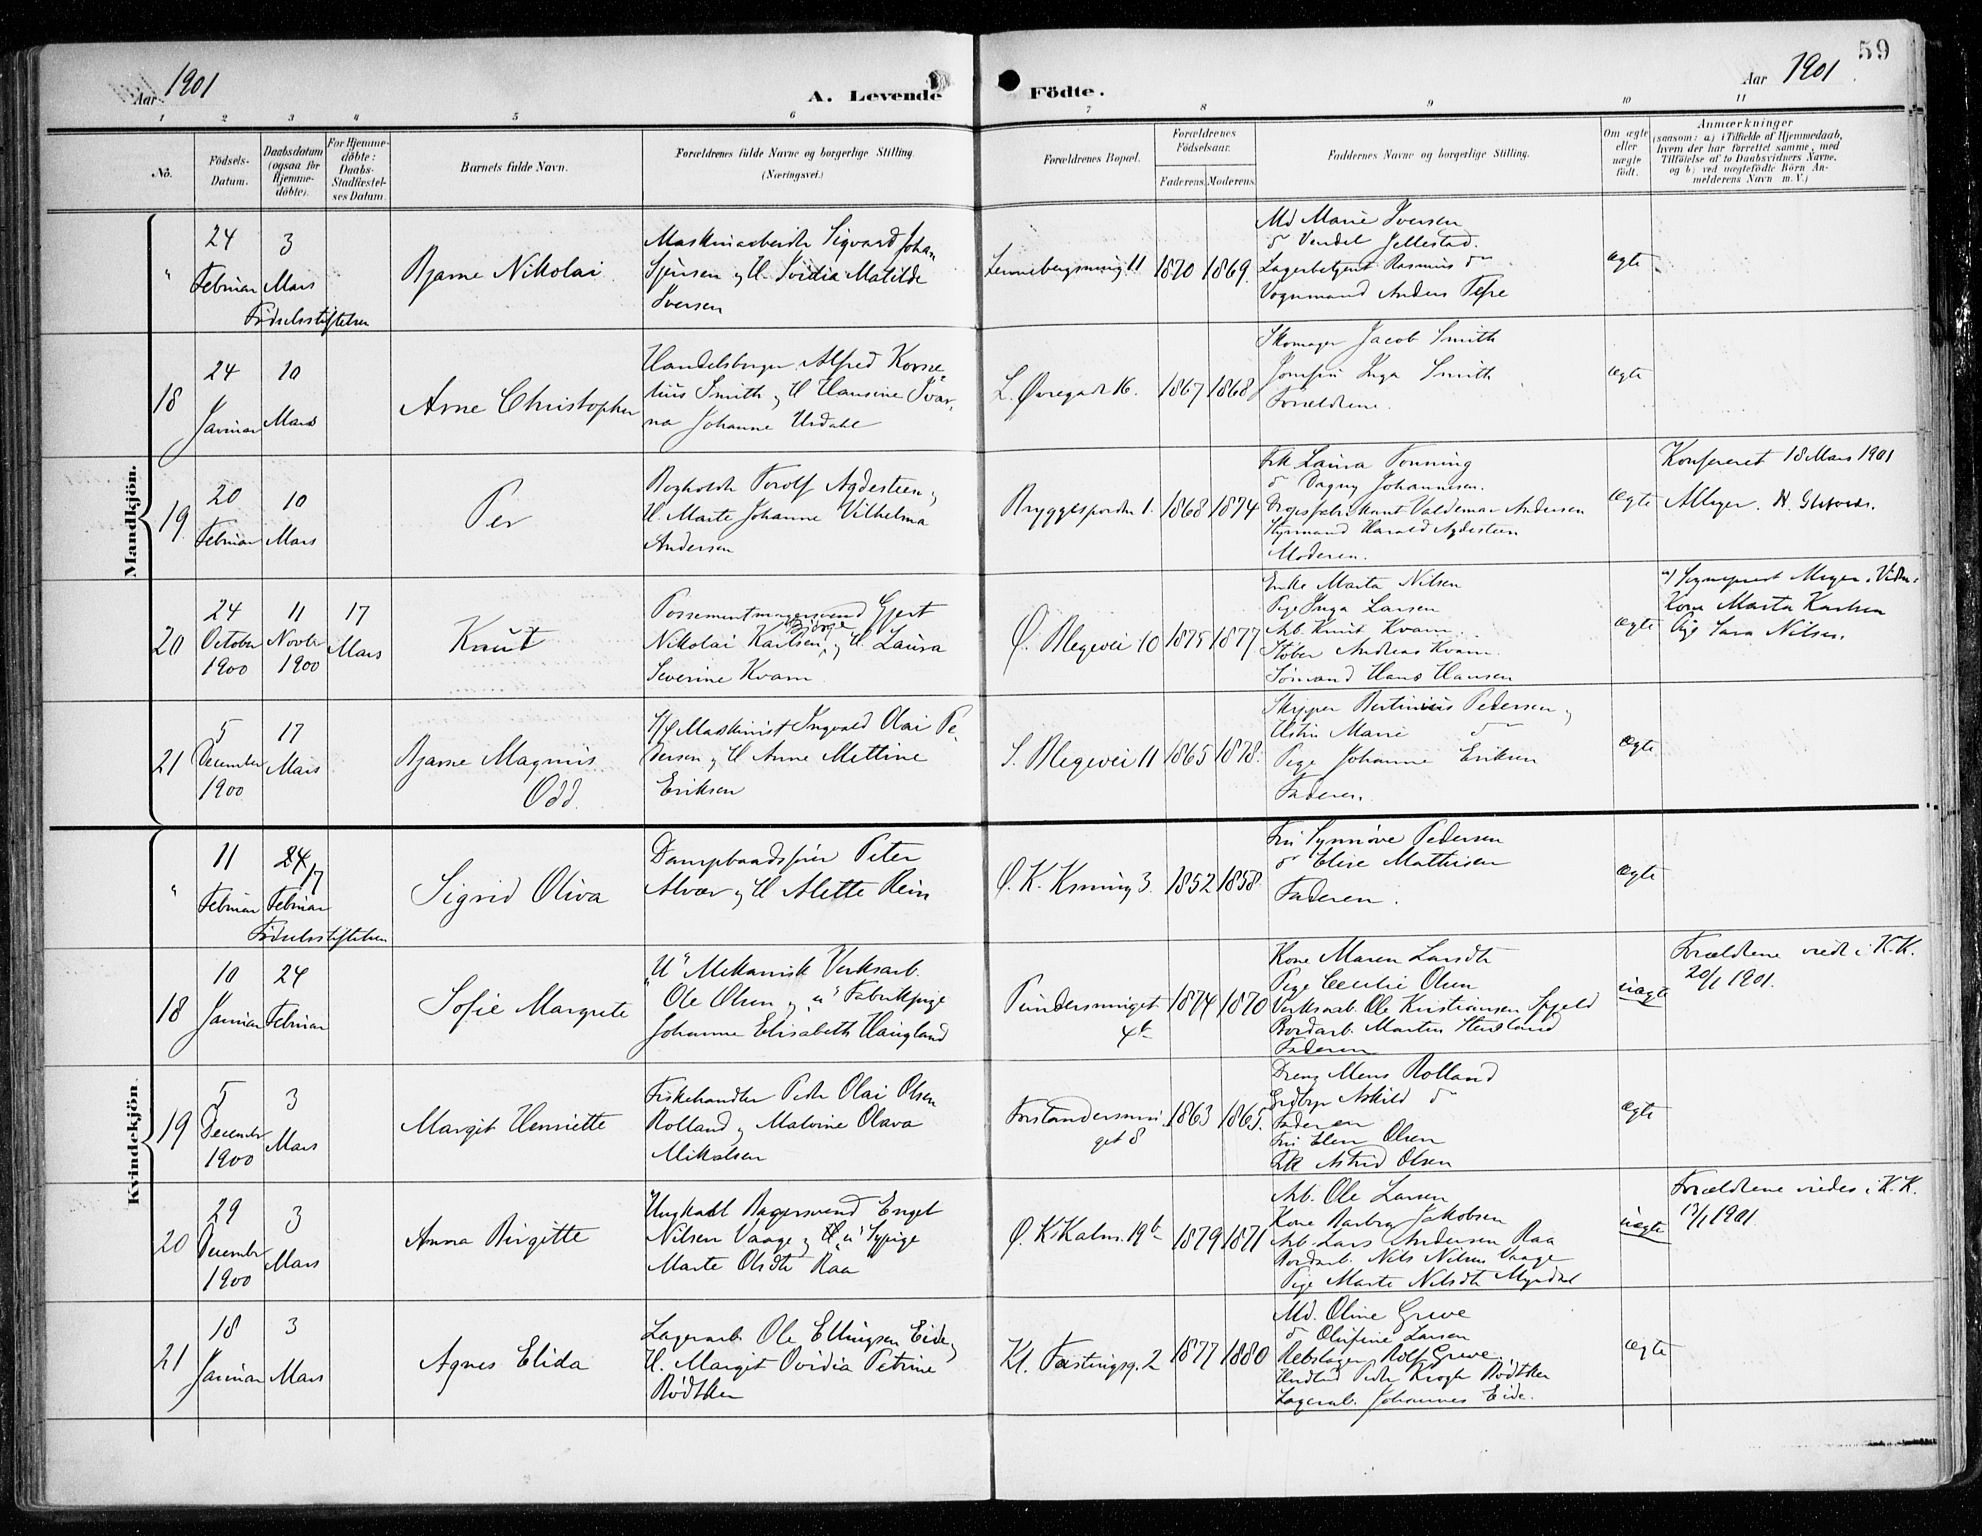 59
Aar 1901
A. Levende Födte.
Aar 1901
1 2 3 4 5 6 7 8 9 10 11
No.
Födsels-Datum.
Daabsdatum (ogsaa for Hjemmedöbte).
For Hjemmedöbte: Daabs-Stadfæstelses Datum.
Barnets fulde Navn.
Forældrenes fulde Navne og borgerlige Stilling.
(Næringsvei.)
Forældrenes Bopæl.
Forældrenes Födselsaar.
Faderens. Moderens.
Faddernes Navne og borgerlige Stilling.
Om ægte eller uægte födt.
Anmærkninger
(saasom: a) i Tilfælde af Hjemmedaab,
hvem der har forrettet samme, med
Tilföielse af to Daabsvidners Navne,
og b) ved uægtefödte Börn Anmelderens Navn m. V.)
Mandkjön.
"
24 Februar
3 Mars
Födselsstiftelsen
Bjarne Nikolai
Maskinarbeider Sigvard Johan
Sjursen og H. Ovidia Matilde
Iversen
11
1870
1869
Md Marie Iversen
do Vendel Jellestad.
Lagerbetjent Rasmus do
Vognmand Anders
ægte
18
24 Januar
10 Mars
Arne Christopher
Handelsborger Alfred Korne-
lius Smith og H Hansine Ivar-
na Johanne Urdahl
L. Øvregade 16.
1867
1868
Skomager Jacob Smith
Jomfru Inga Smith
Forældrene.
ægte
19
20 Februar
10 Mars
Per
Bogholder Torolf Agdesteen og
H. Marte Johanne Vilhelma
Andersen
Bryggesporden 1.
1868
1874
Frk Laura Tonning
do Dagny Johannesen.
Valdemar Andersen
Styrmand Harald Agdesteen
Moderen.
ægte
Konfereret 18 Mars 1901
20
24 October 1900
11 Novbr 1900
17 Mars
Knut
Possementmagersvend Gjert
Nikolai Karlsen Bjørge og H. Laura
Severine Kvam
Ø. Blegevei 10
1875
1877
Enke Marta Nilsen
Pige Inga Larsen
Arb. Knut Kvam
Støber Andreas Kvam
Sømand Hans Hansen
ægte
a) Sogneprest Meyer. Vidn:
Kone Marta Karlsen
Pige Sara Nilsen.
21
5 December 1900
17 Mars
Bjarne Magnus
Odd.
Maskinist Ingvald Olai Pe-
dersen og H Anne Mettine
Eriksen
S. Blegevei 11
1865
1878
Skipper Bertinius Pedersen og
Hustru Marie do
Pige Johanne Eriksen
Faderen.
ægte
Kvindekjön.
"
11 Februar
24/17 Februar
Födselsstiftelsen
Sigrid Oliva
Dampbaadsfører Peter
Alvær og H Alette Rein
Ø. K. 3.
1852
1858
Fru Synnøve Pedersen
do Elise Mathisen
Faderen.
ægte
18
10 Januar
24 Februar
Sofie Margrete
"U" Mekanisk Verksarb.
Ole Olsen og "u" Fabrikpige
Johanne Elisabeth Haugland
Pundersmuget 4b
1874
1870
Kone Maren Larsdtr
Pige Cecilie Olsen
Verksarb. Ole Kristiansen Spjeld
Bordarb. Martin Stensland
Faderen
uægte
Forældrene viedt i K.K.
20/1 1901.
19
5 December 1900
3 Mars
Margit Henriette
Fiskehandler Peder Olai Olsen
Rolland og Malvine Olava
Mikalsen
Forstandersmuget 8
1863
1865.
Dreng Mons Rolland
Askild do
Faderen
Fru Elen Olsen
Frk Astrid Olsen
ægte
20
29 December 1900
3 Mars
Anna Birgitte
Ungkarl Bagersvend Engel
Nilsen Vaage og "u" Sypige
Marte Olsdtr Raa
Ø. K. Kalm. 19b
1879
1871
Arb. Ole Larsen
Kone Barbra Jakobsen
Arb. Lars Andersen Raa
Bordarb. Nils Nilsen Vaage
Pige Marte Nilsdtr Myrdal
uægte
Forældrene viedes i K.K.
13/1 1901.
21
18 Januar
3 Mars
Agnes Elida
Lagerarb. Ole Ellingsen Eide og
H. Margit Ovidia Petrine
Rödtker
Kl. Fastingsg. 2
1877
1880
Md. Oline Greve
do Olufine Larsen
Rebslager Rolf Greve
Peder Krogh Rödtker
Lagerarb. Johannes Eide.
ægte